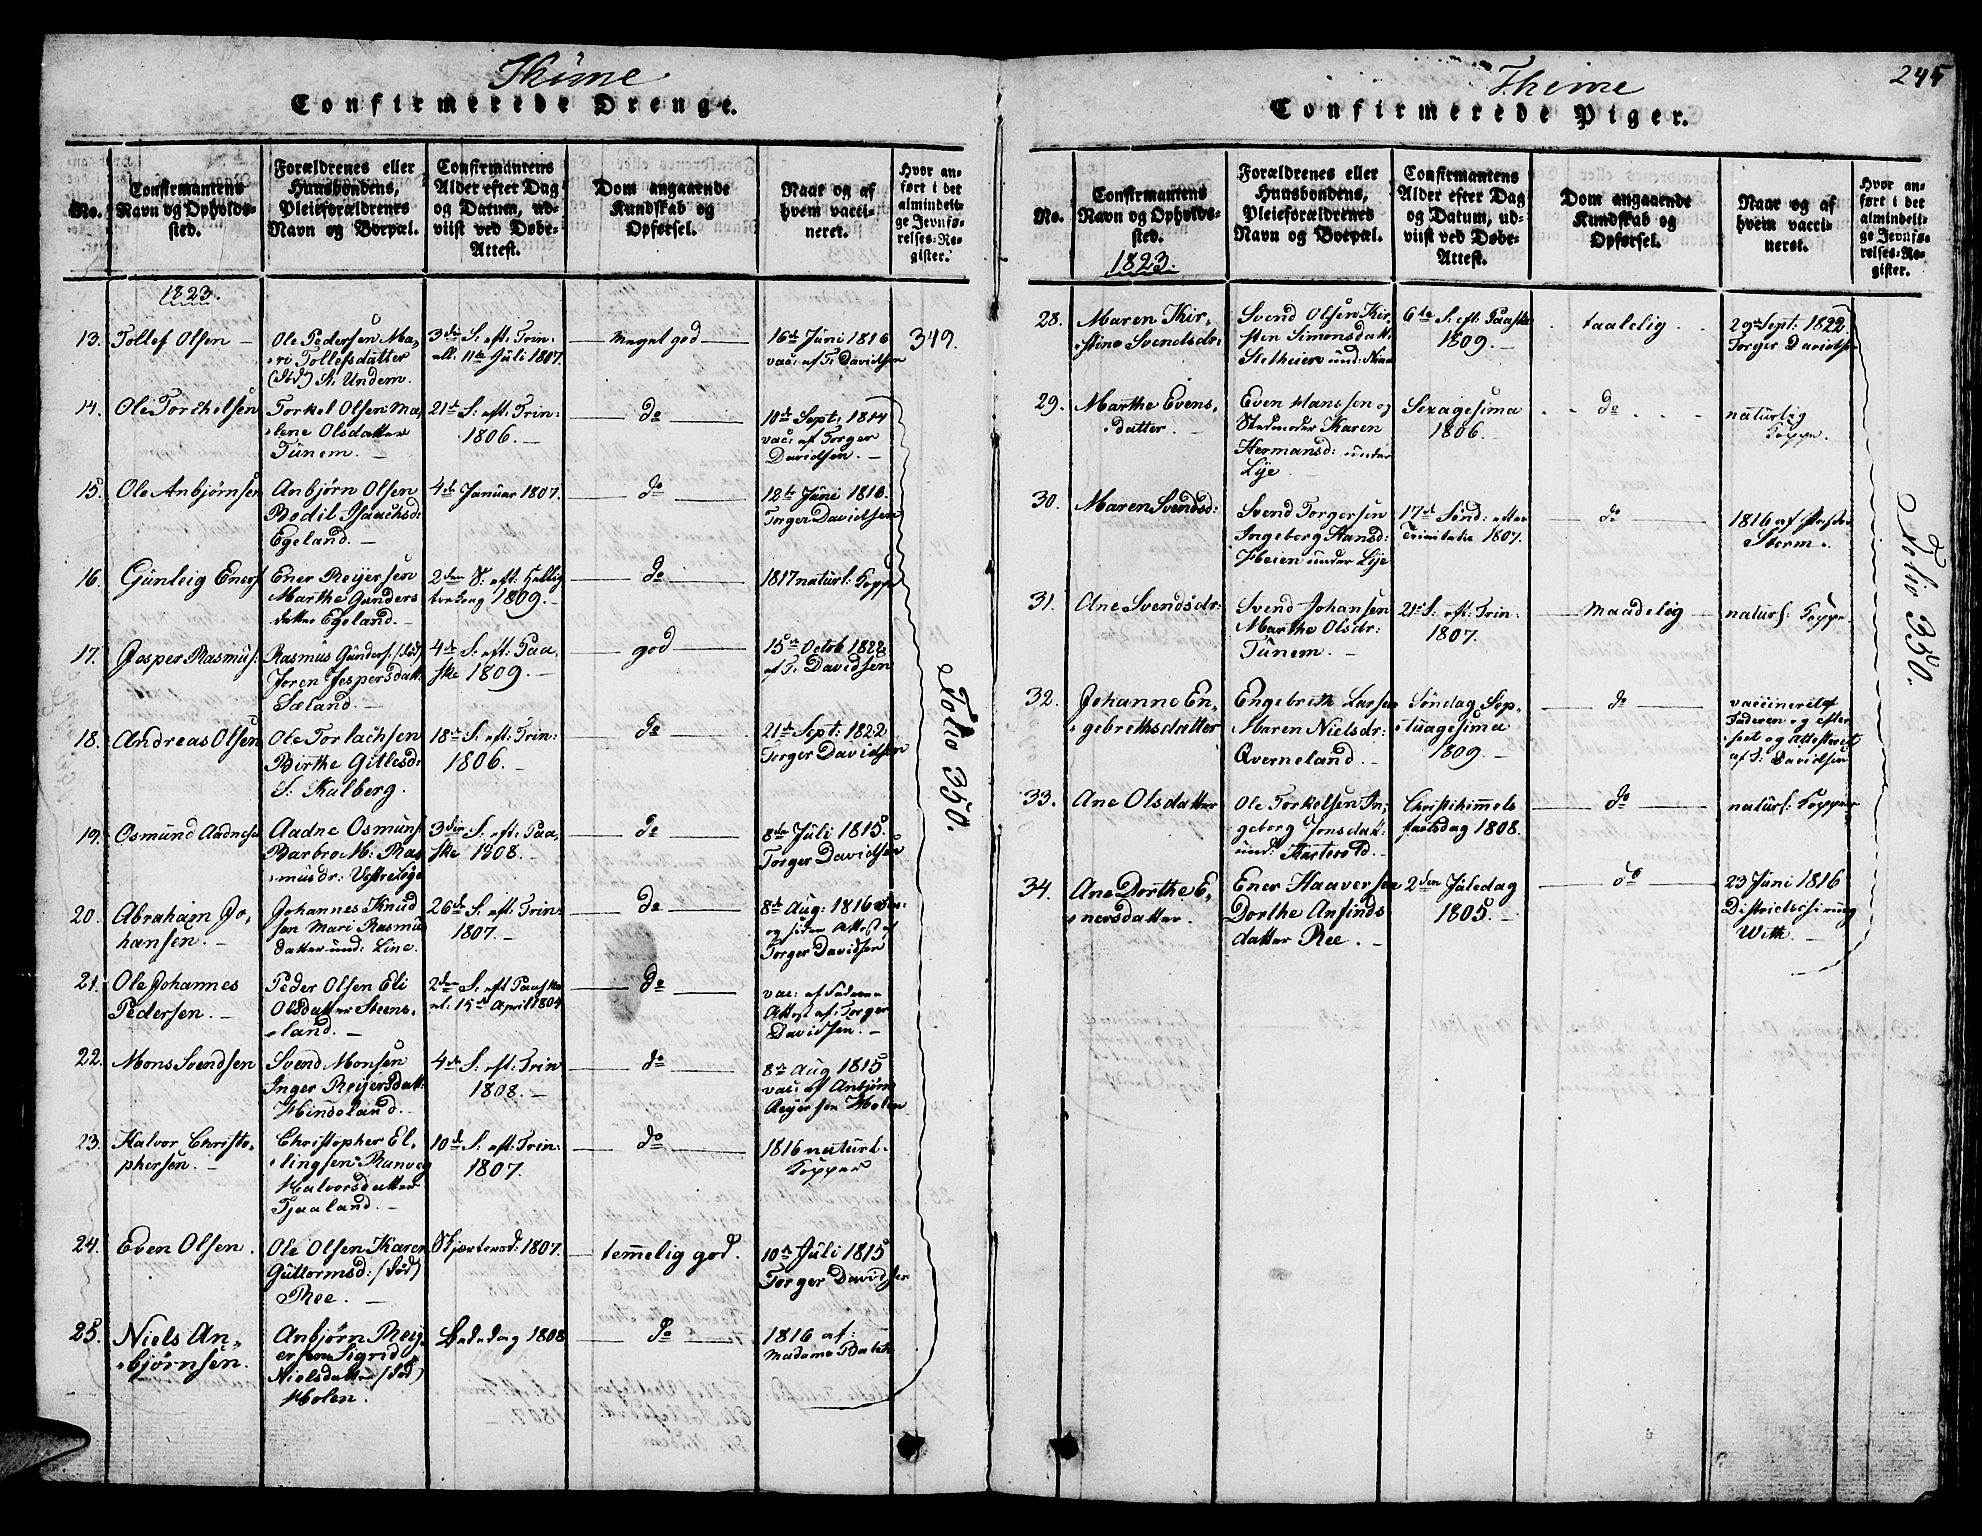 Thime
Confirmerede Drenge.
No.
Confirmantens
Navn og Opholds-
sted.
Forældrenes eller
Huusbondens,
Pleieforældrenes
Navn og Boepæl.
Confirmantens
Alder efter Dag
og Datum, ud-
viist ved Døbe-
Attest.
Dom angaaende
Kundskab og
Opførsel.
Naar og af
hvem vacci-
neret.
Hvor an-
ført i det
almindeli-
ge Jevnfø-
relses-Re-
gister.
1823.
13. Tollef Olsen
Ole Pedersen Ma-
ri Tollefsdatter
(død) S: Undem.
3die S. eft: Trin:
ell: 11te Juli 1807.
Meget god
16de Juni 1816
vac: af T: Davidsen
349.
14. Ole Torchelsen
Torkel Olsen Ma-
lene Olsdatter
Tunem.
21de S: eft: Trin:
1806.
do
10de Sept: 1814
vac: af Torger
Davidsen.
15. Ole Anbjørnsen
Anbjørn Olsen
Bodil Isaachsd:
Egeland.
4de Januar 1807.
do
12te Juni 1810
Torger Davidsen
16. Gunleig Eners
Ener Reijersen
Marthe Gunders
datter Egeland.
2den S: eft: Hellig
tre Kong 1809.
do
1817 naturl: Kopper
17. Jesper Rasmus:
Rasmus Gunders: (død)
Joren Jespersdatt:
Sæland.
4de S: eft: Paa-
ske 1809.
god
15de Octob 1822
af T: Davidsen
18. Andreas Olsen
Ole Torlachsen
Birthe Gitlesd:
S: Kalberg.
18de S: eft: Trin:
1806.
do
21de Sept: 1822
Torger Davidsen
19. Osmund Aadnesen
Aadne Osmuns
Barbro M: Ras
musdr: Vestrelye
3die S: eft: Paa-
ske 1808.
do
8de Juli 1815.
Torger Davidsen
20. Abraham Jo-
hansen.
Johannes Knud
sen Mari Rasmus
datter und: Line.
26de S: eft: Trin:
1807.
do
8de Aug: 1816
og siden Attest af
Torger Davidsen
21. Ole Johannes
Pedersen.
Peder Olsen Eli
Olsdatter Steens-
land.
2den S: eft Paaske
el: 15de April 1804
do
vac: af Faderen
Attest af: Torger
Davidsen.
22. Mons Svendsen
Svend Monsen
Inger Reijersdatt:
Hindeland.
4de S: eft: Trin
1808.
do
8de Aug 1815
vac: af Anbjørn
Reijersen Holen
23. Halvor Christo-
phersen.
Christopher El-
lingsen Ranveg
Halvorsdatter
Tjaaland.
10de S: eft: Trin:
1807.
do
1816 naturl.
Kopper
24. Even Olsen.
Ole Olsen Karen
Guttormsd: (død)
Ree.
Skjærtorsd: 1807.
temmelig god.
10de Juli 1815
Torger Davidsen
25. Niels An-
bjørnsen.
Anbjørn Reij
ersen Sigrid
Nielsdatter (død)
Holen.
Bededag 1808
do
1816 af:
Madame Balch
Folio 350.
Thime
245
Confirmerede Piger.
No.
Confirmantens
Navn og Opholds-
sted.
1823.
Forældrenes eller
Huusbondens,
Pleieforældrenes
Navn og Boepæl.
Confirmantens
Alder efter Dag
og Datum, ud-
viist ved Døbe-
Attest.
Dom angaaende
Kundskab og
Opførsel.
Naar og af
hvem vacci-
neret.
Hvor an-
ført i det
almindeli-
ge Jevnfø-
relses-Re-
gister.
28. Maren Kir-
stine Svendsdr:
Svend Olsen Kir
sten Simonsdatt:
Stetheien und:
6te S: eft: Paaske
1809.
taalelig
29de Sept: 1822
Torger Davidsen
29. Marthe Evens-
datter.
Even Hanssen og
Stedmoder Karen
Hermansd: under
Lye
Sexagesima
1806.
do
naturlig
Koppe.
30. Maren Svendsd:
Svend Torgersen
Ingeborg Hansd:
Heien under Lye
17de Sønd: efter
Trinitatis 1807.
do
1816 af Præsten
Storm.
31. Ane Svendsdr:
Svend Johansen
Marthe Olsdr:
Tunem.
21de S: eft: Trin:
1807.
Maadelig
naturl: Kopper
32. Johanne En-
gebrethsdatter
Engebreth Larsen
Maren Nielsdr:
Qverneland.
Søndag Sep-
tuagesima
1809.
do
vaccineret af
Faderen og efter
seet og Attesteret
af T: Davidsen
33. Ane Olsdatter
Ole Torkelsen In-
geborg Jonsdatt:
und:
Christihimmels
fartsdag 1808.
do
naturl: Kopper
34. Ane Dorthe E-
nersdatter.
Ener Haaversen
Dorthe Anfinds
datter Ree.
2den Juledag
1805.
do
23 Juni 1816
Districtschirurg
With.
Folio 350.